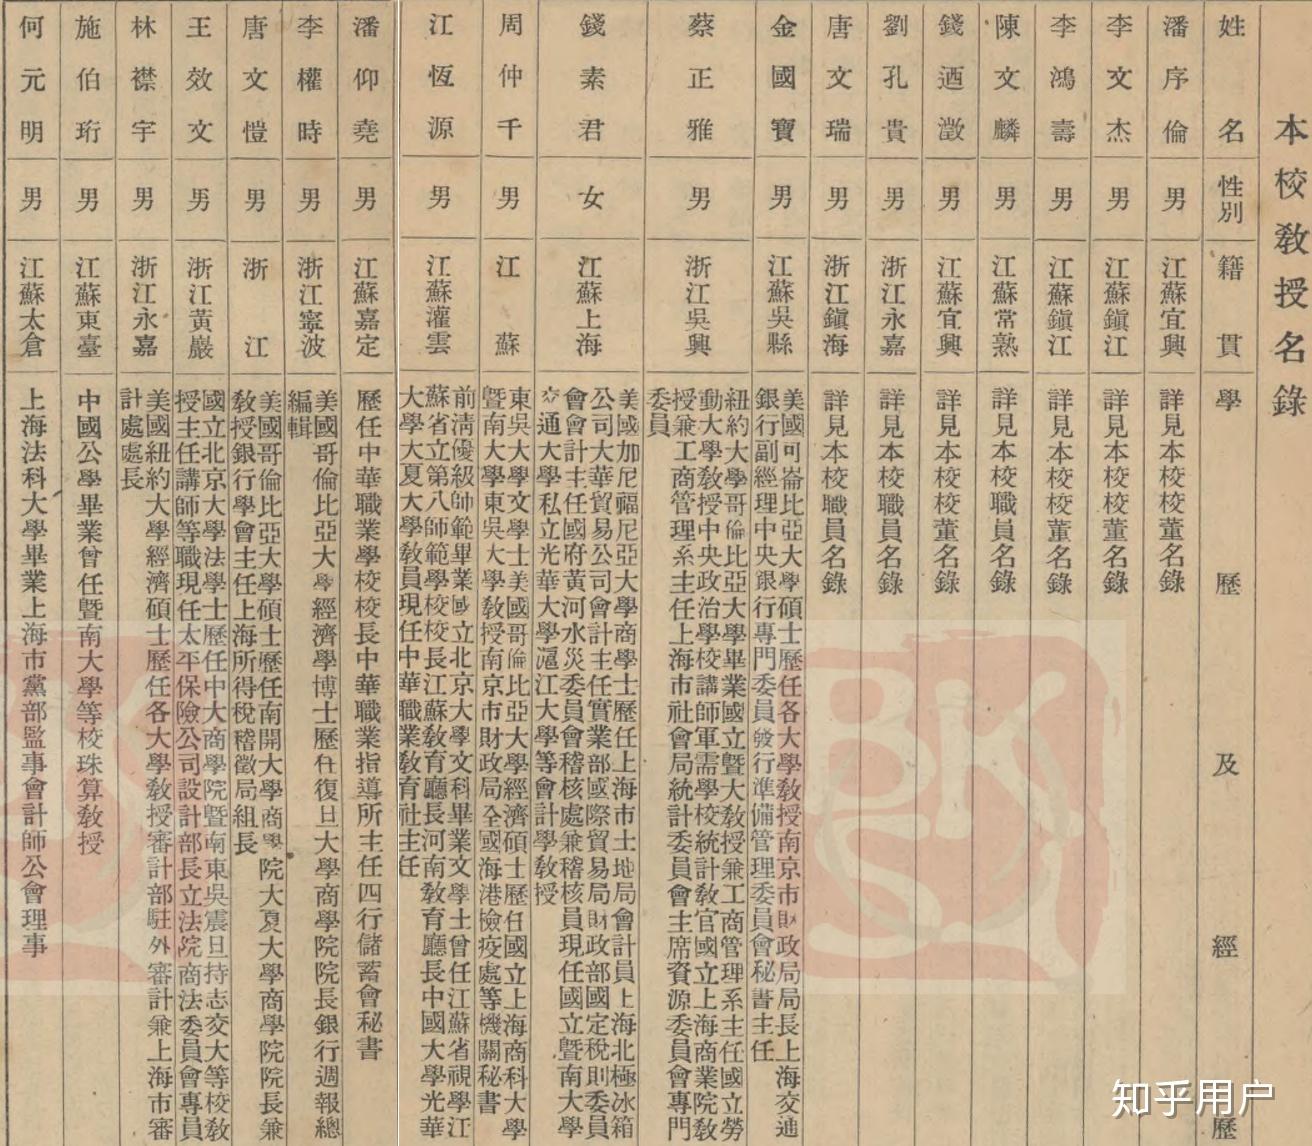 本校教授名錄
姓名
性別
籍貫
學歷及經歷
潘序倫
男
江蘇宜興
詳見本校校董名錄
李文杰
男
江蘇鎭江
詳見本校校董名錄
李鴻壽
男
江蘇鎭江
詳見本校校董名錄
陳文麟
男
江蘇常熟
詳見本校職員名錄
錢迺澂
男
江蘇宜興
詳見本校校董名錄
劉孔貴
男
浙江永嘉
詳見本校職員名錄
唐文瑞
男
浙江鎭海
詳見本校職員名錄
金國寶
男
江蘇吳縣
美國可崙比亞大學碩士歷任各大學敎授南京市財政局局長上海交通
銀行副經理中央銀行專門委員發行準備管理委員會秘書主任
蔡正雅
男
浙江吳興
紐約大學哥倫比亞大學畢業國立暨大敎授兼工商管理系主任國立勞
動大學敎授中央政治學校講師軍需學校統計敎官國立上海商業院敎
授兼工商管理系主任上海市社會局統計委員會主席資源委員會專門
委員
錢素君
女
江蘇上海
美國加尼福尼亞大學商學士歷任上海市土地局會計員上海北極冰箱
公司大華貿易公司會計主任實業部國際貿易局財政部國定稅則委員
會會計主任國府黃河水災委員會稽核處兼稽核員現任國立暨南大學
交通大學私立光華大學滬江大學等會計學敎授
周仲千
男
江蘇
東吳大學文學士美國哥倫比亞大學經濟碩士歷任國立上海商科大學
暨南大學東吳大學敎授南京市財政局全國海港檢疫處等機關秘書
江恆源
男
江蘇灌雲
前淸優級師範畢業國立北京大學文科畢業文學士曾任江蘇省視學江
蘇省立第八師範學校校長江蘇敎育廳長河南敎育廳長中國大學光華
大學大夏大學敎員現任中華職業敎育社主任
潘仰堯
男
江蘇嘉定
歷任中華職業學校校長中華職業指導所主任四行儲蓄會秘書
李權時
男
浙江寧波
美國哥倫比亞大學經濟學博士歷任復旦大學商學院院長銀行週報總
編輯
唐文愷
男
浙江
美國哥倫比亞大學碩士歷任南開大學商學院大夏大學商學院院長兼
敎授銀行學會主任上海所得稅稽徵局組長
王效文
男
浙江黃巖
國立北京大學法學士歷任中大商學院暨南東吳震旦持志交大等校敎
授主任講師等職現任太平保險公司設計部長立法院商法委員會專員
林襟宇
男
浙江永嘉
美國紐約大學經濟碩士歷任各大學敎授審計部駐外審計兼上海市審
計處處長
施伯珩
男
江蘇東臺
中國公學畢業曾任暨南大學等校珠算敎授
何元明
男
江蘇太倉
上海法科大學畢業上海市黨部監事會計師公會理事
知乎用户